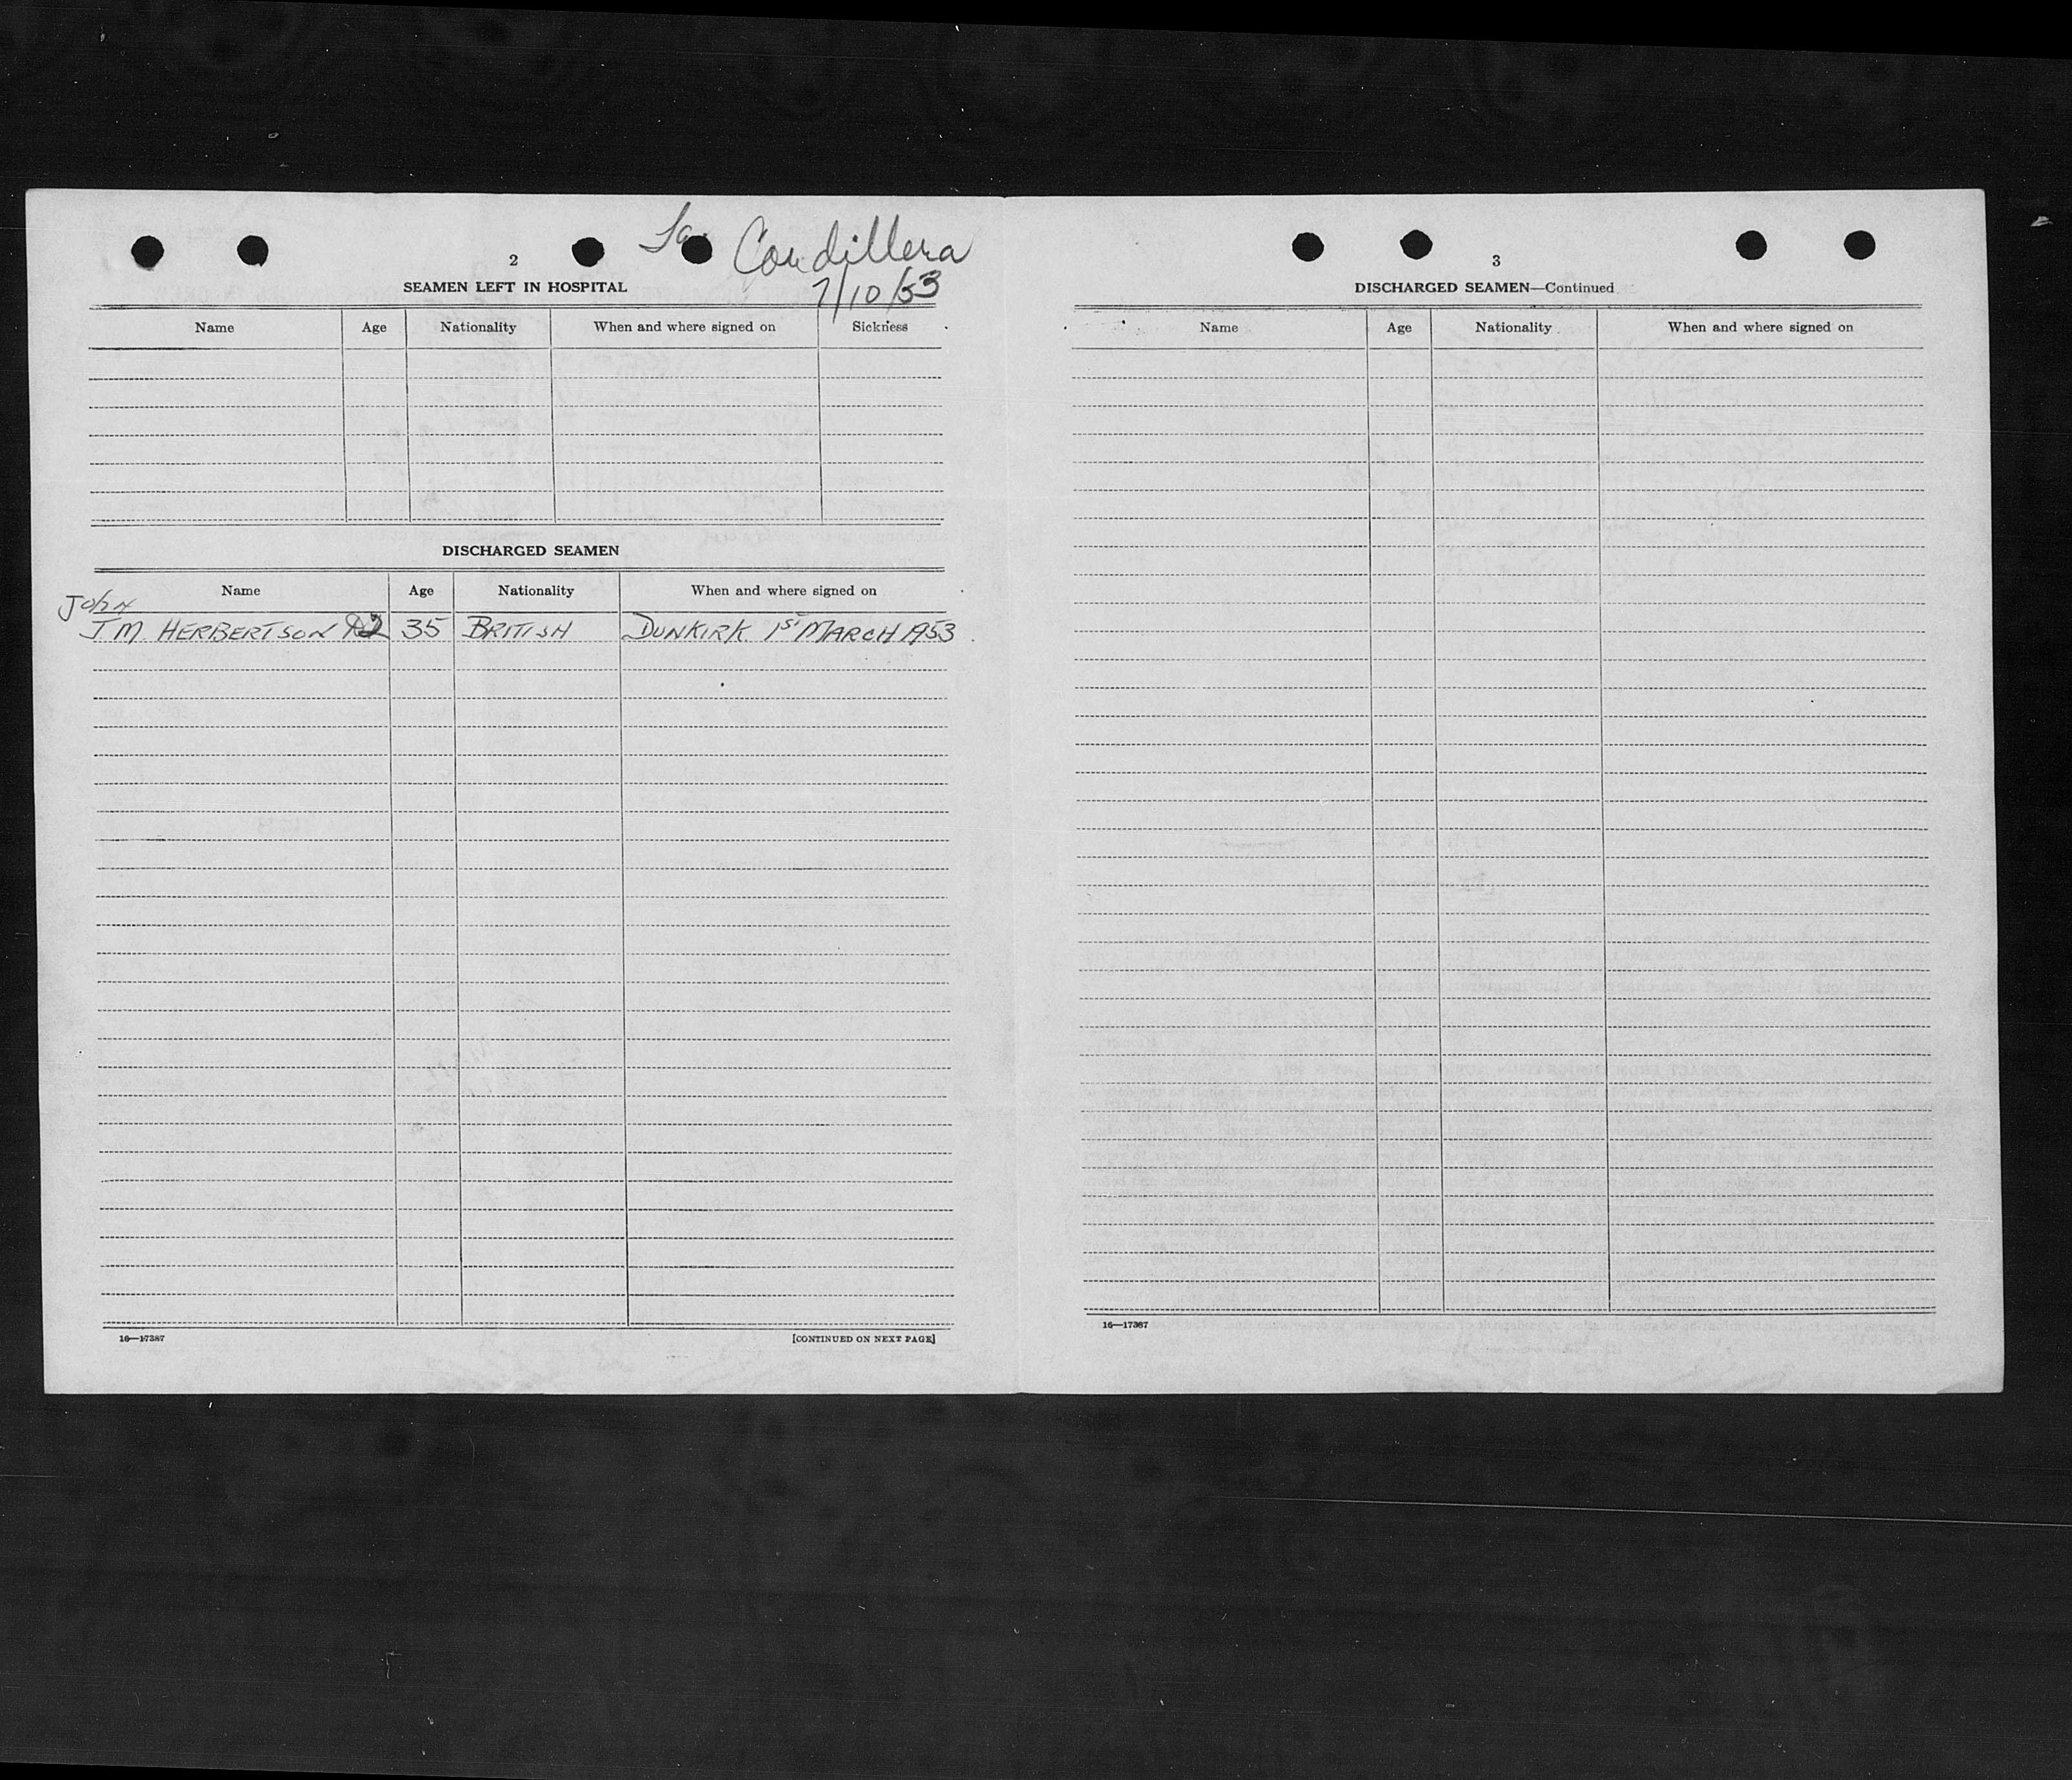 La Cordillera
7/10/53
2
SEAMEN LEFT IN HOSPITAL
Name Age Nationality When and where signed on Sickness
DISCHARGED SEAMEN
Name Age Nationality When and where signed on
John
J M. HERBERTSON 35 BRITISH DUNKIRK 1st MARCH 1953
16—17387 [CONTINUED ON NEXT PAGE]
3
DISCHARGED SEAMEN—Continued
Name Age Nationality When and where signed on
16—17387